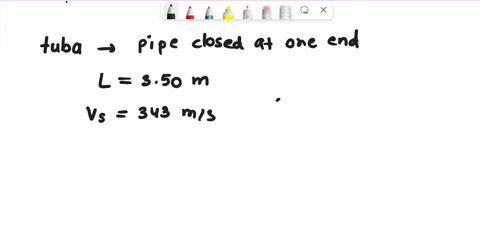 tuba → pipe closed at one end
L = 3.50 m
Vs = 343 m/s